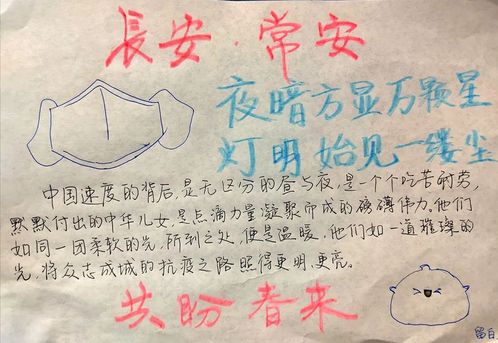 長安·常安
夜暗方显万颗星
灯明始见一缕尘
中国速度的背后,是无区分的昼与夜,是一个个吃苦耐劳,
默默付出的中华儿女,是点滴力量凝聚而成的磅礴伟力。他们
如同一团柔软的光,所到之处,便是温暖,他们如一道璀璨的
光,将众志成城的抗疫之路照得更明,更亮。
共盼春来
留白